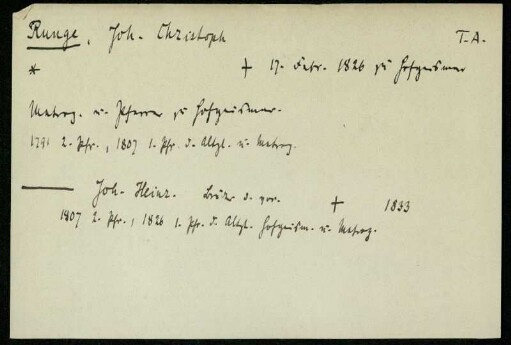 Runge, Joh. Christoph T.A.
* † 17. Febr. 1826 zu Hofgeismar
Metrop. u. Pfarrer zu Hofgeismar.
1791 2. Pfr., 1807 1. Pfr. d. Altst. u. Metrop.
—— Joh. Heinr. Bruder d. vor. † 1833
1807 2. Pfr., 1826 1. Pfr. d. Altst. Hofgeism. u. Metrop.